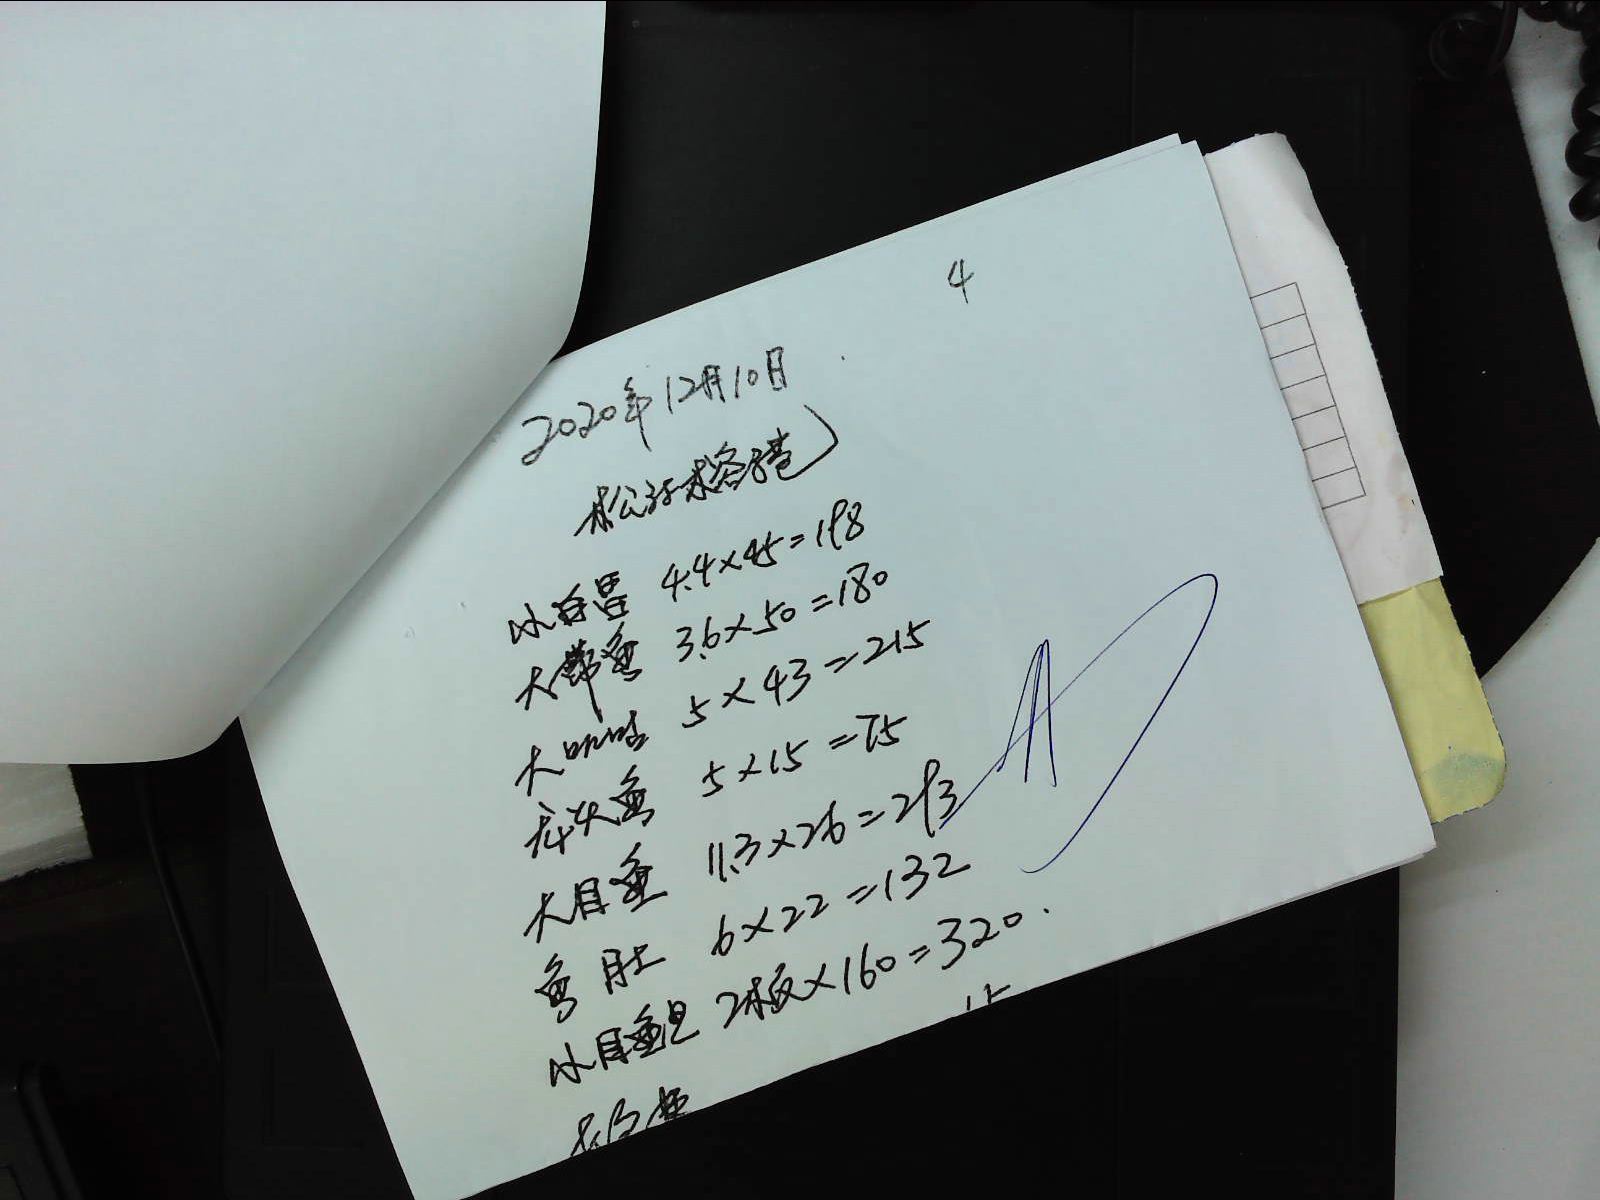 4
2020年12月10日
松江榕港
冰白昌 4.4×45=198
大带鱼 3.6×50=180
大 5×43=215
龙头鱼 5×15=75
大目鱼 11.3×26=293
鱼肚 6×22=132
冰目鱼 2板×160=320
15
鱼